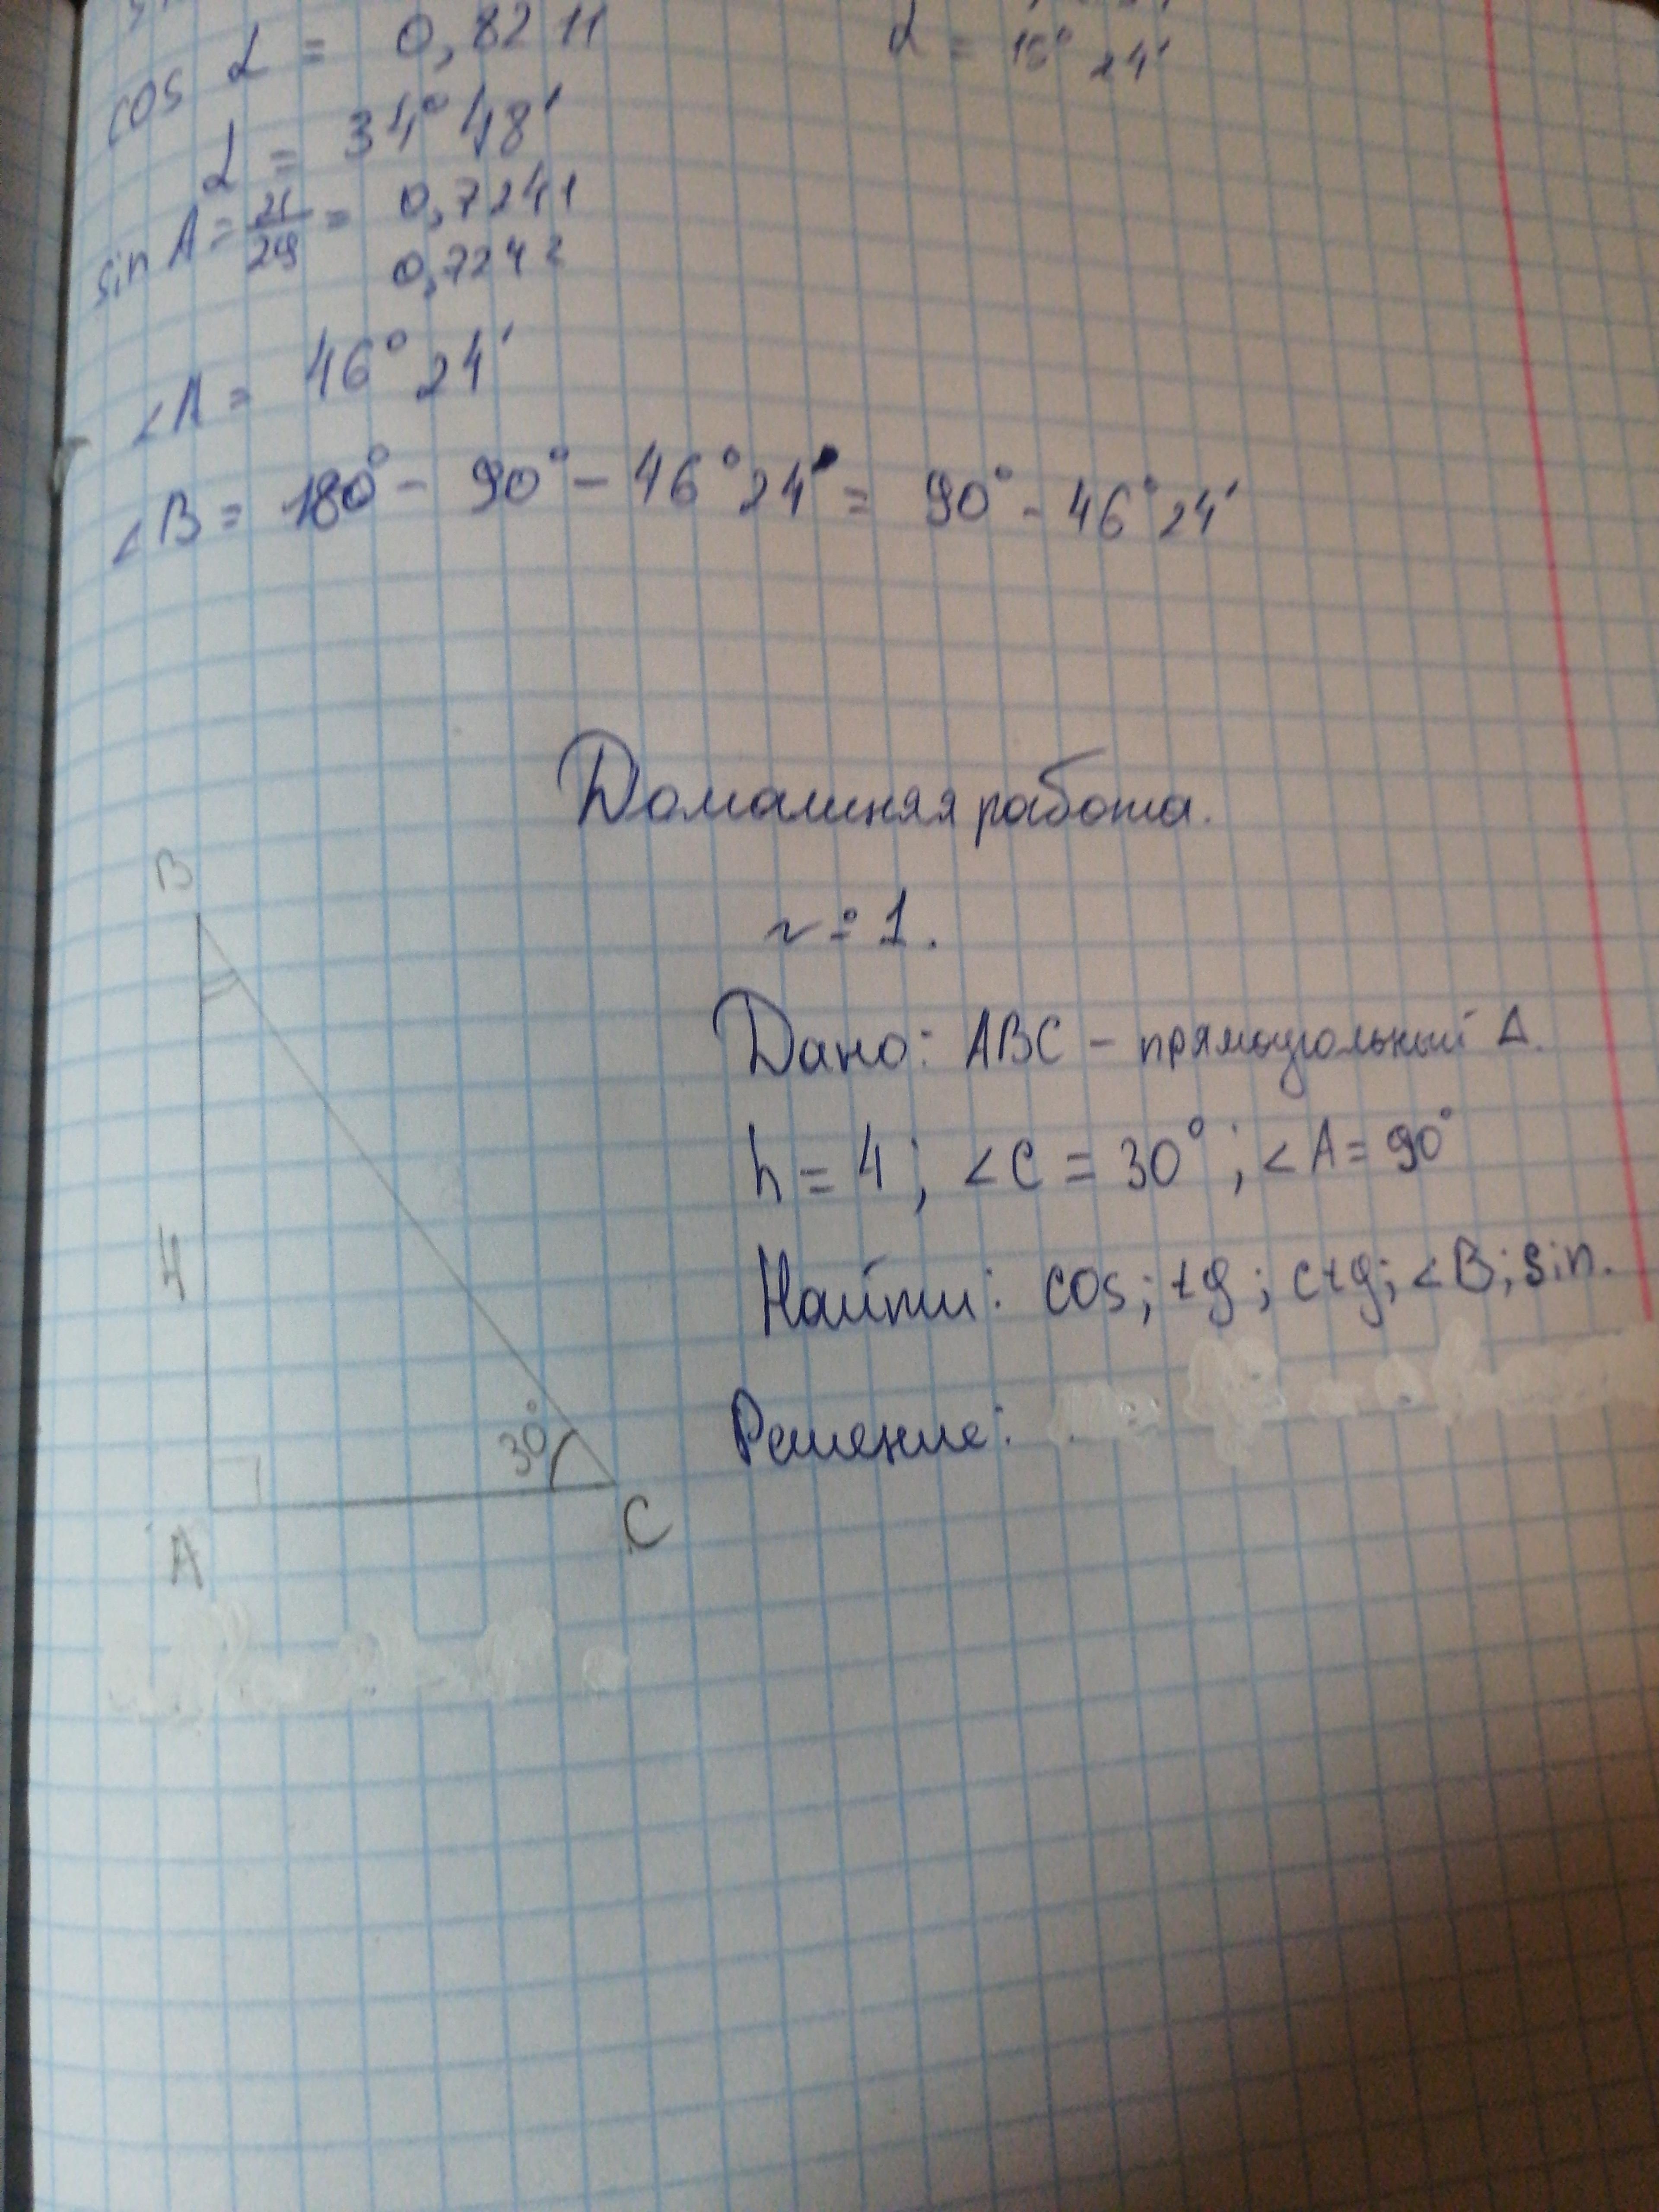 cos α = 0,8211
α = 34° 48'
sin A = 21/29 = 0,7241
0,7242
∠A = 46° 24'
∠B = 180° - 90° - 46° 24' = 90° - 46° 24'
Домашняя работа.
№ 1.
Дано: ABC - прямоугольный Δ.
h = 4; ∠C = 30°; ∠A = 90°
Найти: cos; tg; ctg; ∠B; sin.
Решение:
B
4
30°
A
C